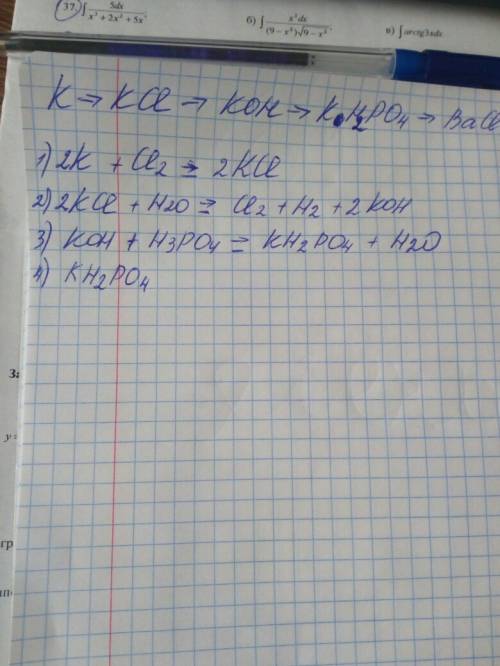 37. ∫ 5dx / x³ + 2x² + 5x ;
б) ∫ x³dx / (9 − x²)√9 − x² ;
в) ∫ arctg3xdx
K → KCl → KOH → KH₂PO₄ → BaCl
1) 2K + Cl₂ = 2KCl
2) 2KCl + H2O = Cl₂ + H₂ + 2KOH
3) KOH + H3PO₄ = KH₂PO₄ + H2O
4) KH₂PO₄
За
y =